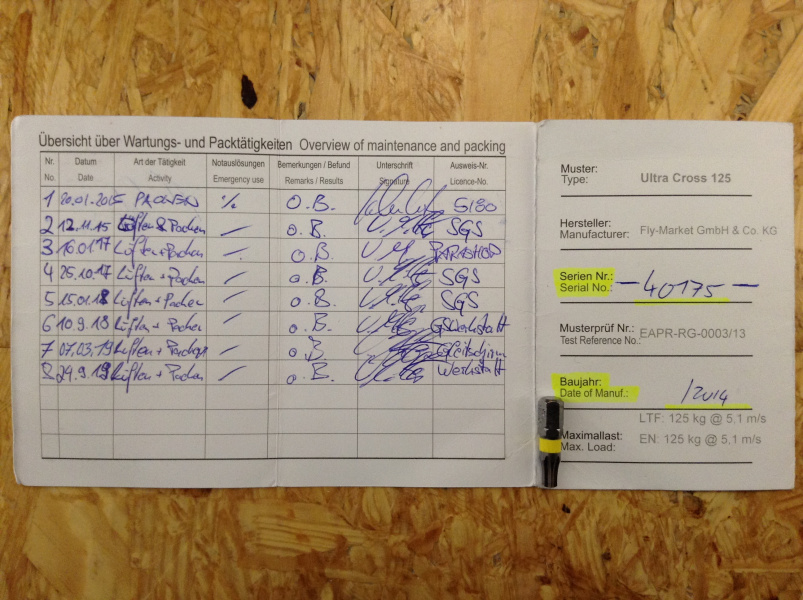 Übersicht über Wartungs- und Packtätigkeiten Overview of maintenance and packing
Nr. Datum Art der Tätigkeit Notauslösungen Bemerkungen / Befund Unterschrift Ausweis-Nr.
No. Date Activity Emergency use Remarks / Results Signature Licence-No.
1 20.01.2015 PACKEN ./. o.B. 5180
2 12.11.15 Lüften & Packen — o.B. SGS
3 16.01.17 Lüften + Packen — o.B. PARASHOP
4 25.10.17 Lüften + Packen — o.B. SGS
5 15.01.18 Lüften + Packen — o.B. SGS
6 10.9.18 Lüften + Packen — o.B. GSWerkstatt
7 07.03.19 Lüften + Packen — o.B. Gleitschirm
8 29.9.19 Lüften + Packen — o.B. Werkstatt
Muster:
Type: Ultra Cross 125
Hersteller:
Manufacturer: Fly-Market GmbH & Co. KG
Serien Nr.:
Serial No.: – 40175 –
Musterprüf Nr.:
Test Reference No.: EAPR-RG-0003/13
Baujahr:
Date of Manuf.: /2014
LTF: 125 kg @ 5,1 m/s
Maximallast:
Max. Load: EN: 125 kg @ 5,1 m/s